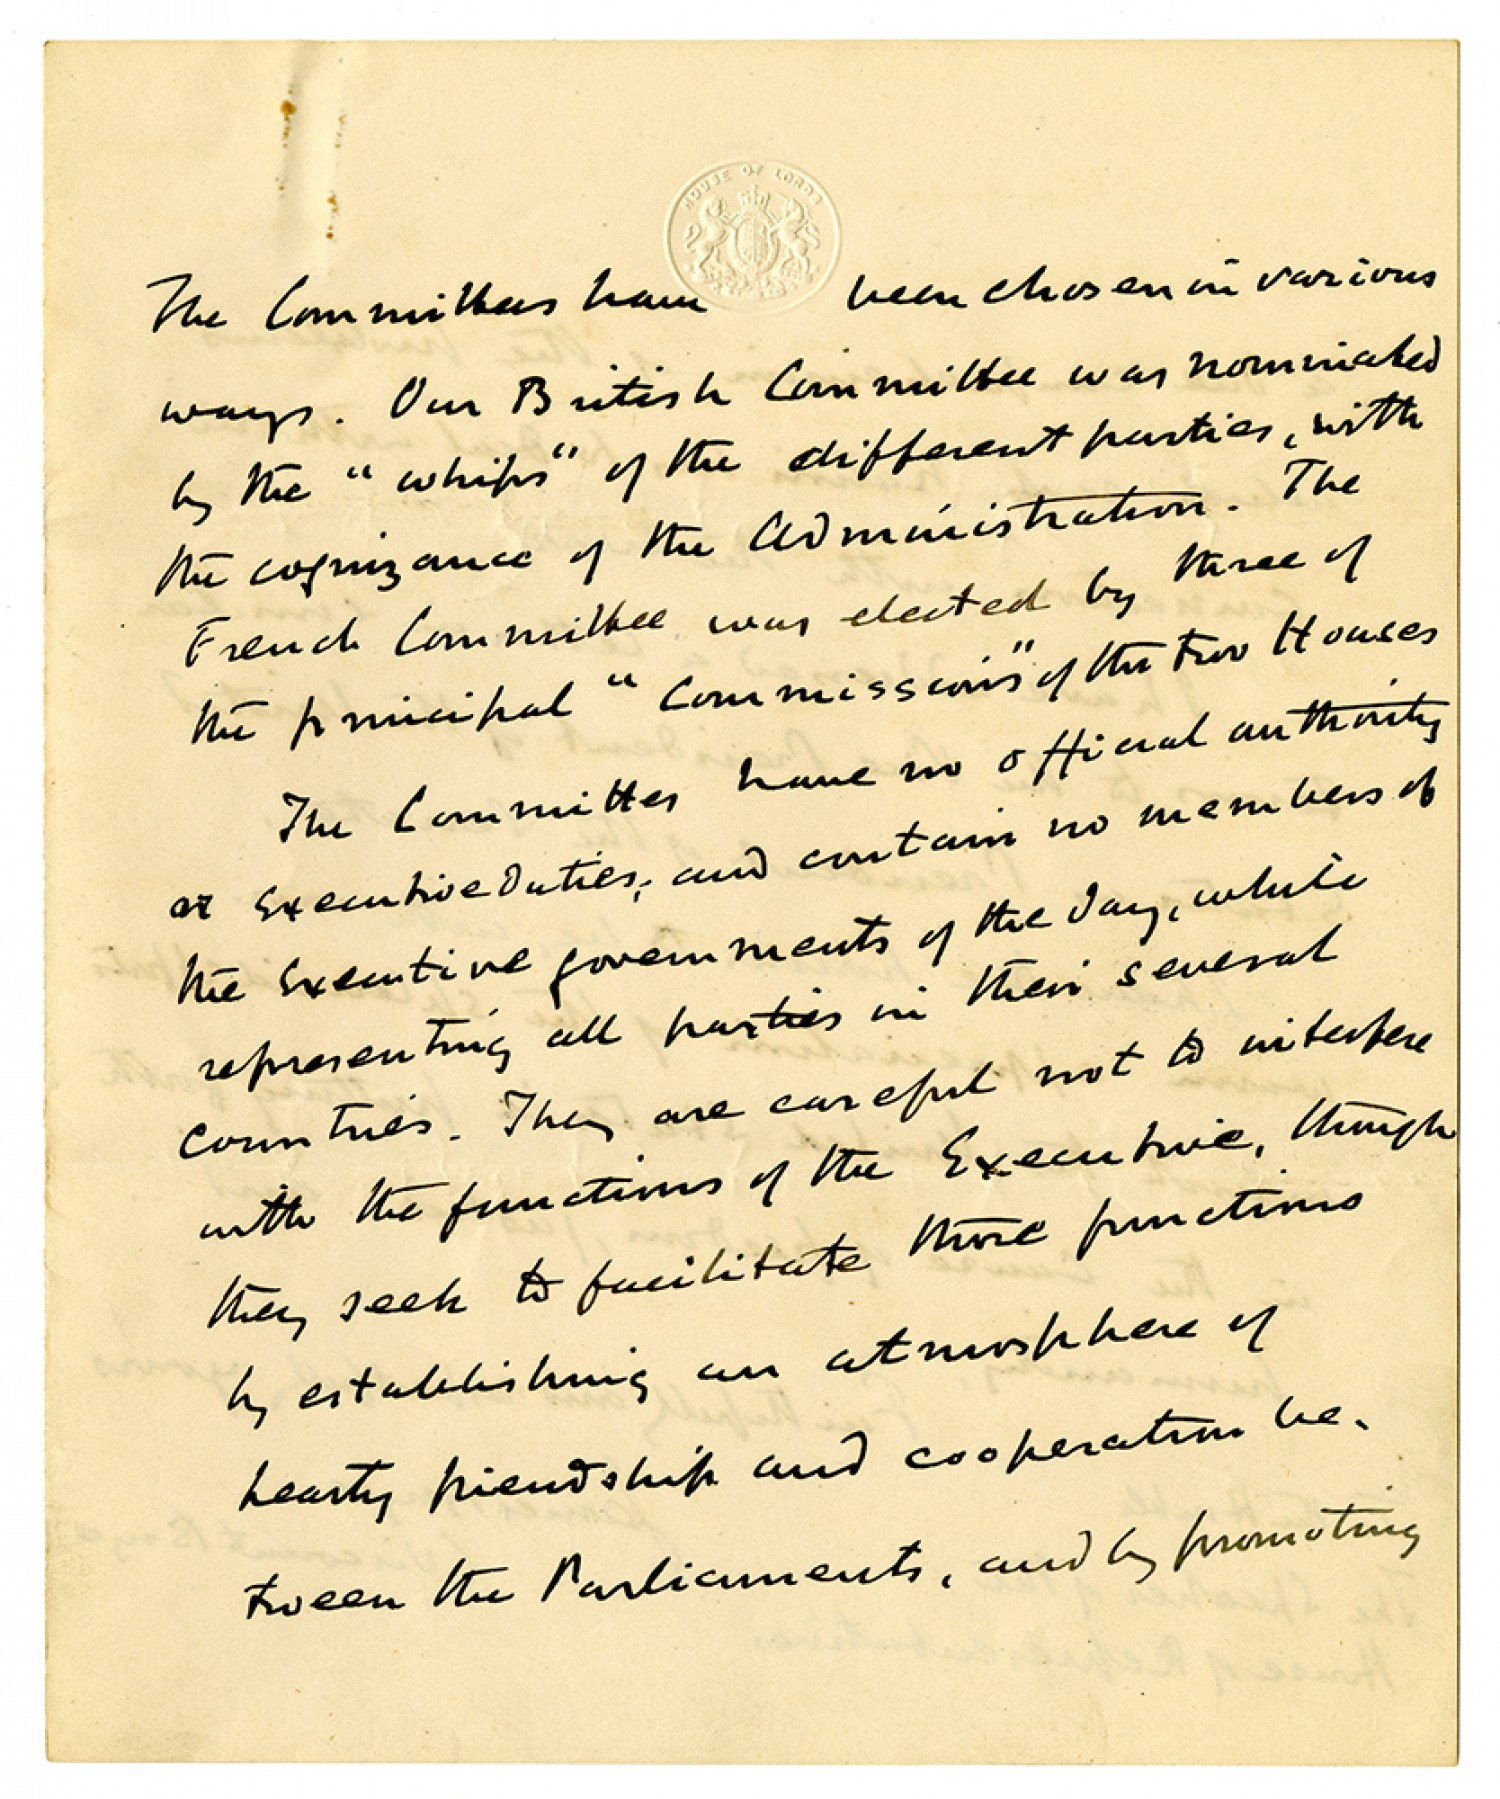 HOUSE OF LORDS
The Committees have been chosen in various
ways. Our British Committee was nominated
by the "whips" of the different parties, with
the cognizance of the Administration. The
French Committee was elected by three of
the principal "Commissions" of the two Houses
The Committees have no official authority
or Executive duties, and contain no members of
the Executive governments of the day, while
representing all parties in their several
countries. They are careful not to interfere
with the functions of the Executive, though
they seek to facilitate those functions
by establishing an atmosphere of
hearty friendship and cooperation be-
tween the Parliaments, and by promoting